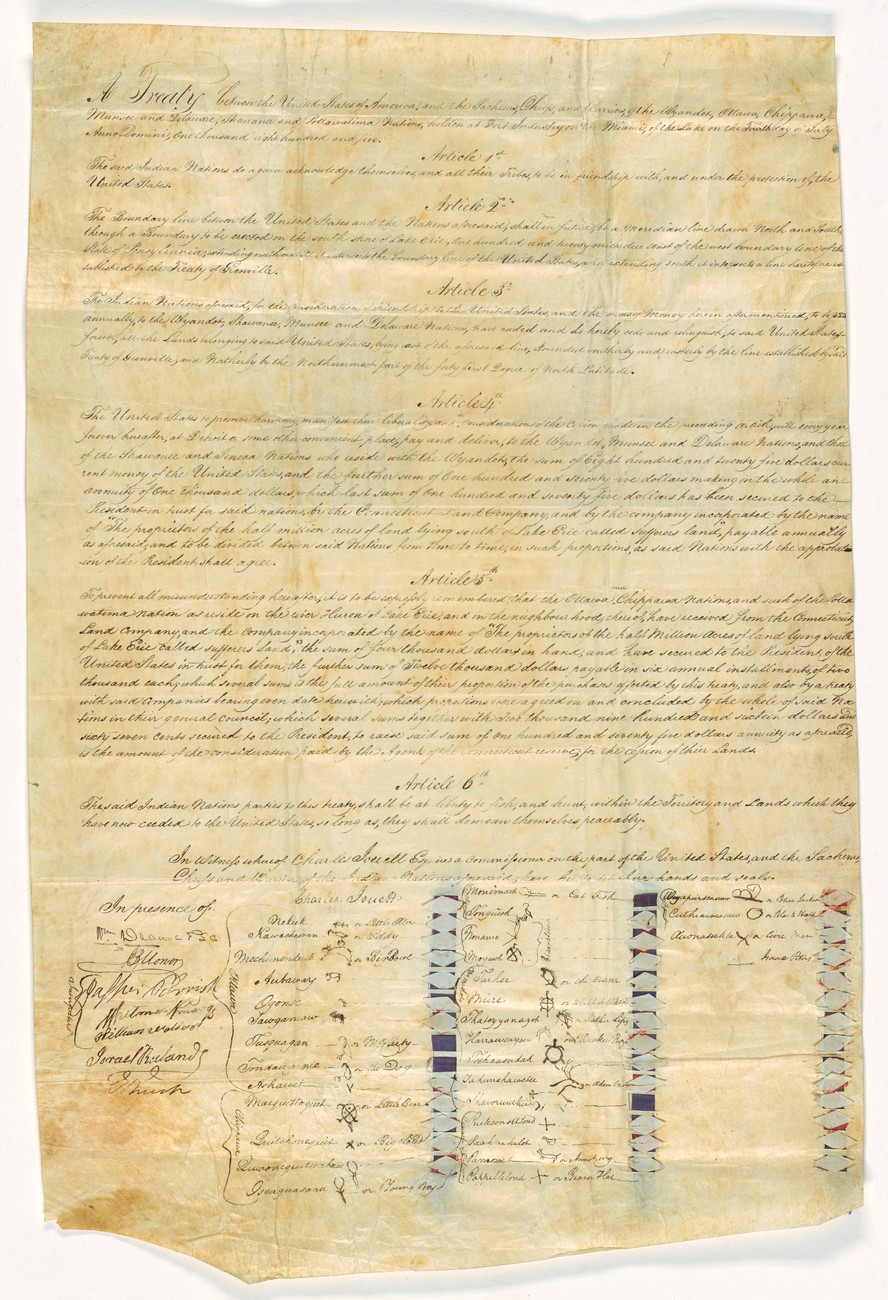 A Treaty between the United States of America, and the Sachems, Chiefs, and Warriors, of the Wyandot, Ottawa, Chippawa,
Munsee and Delaware, Shawanee and Pottawatima Nations, holden at Fort Industry on the Miami, of the Lake on the Fourth day of July
Anno Domini, One thousand eight hundred and five.
Article 1st
The said Indian Nations do again acknowledge themselves, and all their Tribes, to be in friendship with, and under the protection of, the
United States.
Article 2d
The Boundary line between the United States and the Nations aforesaid, shall in future, be a meridian line drawn North and South,
through a Boundary to be erected on the south shore of Lake Erie, one hundred and twenty miles due west of the west boundary line of the
State of Pennsylvania, extending north until it intersects the boundary line of the United States, and extending south it intersects a line heretofore es-
tablished by the Treaty of Grenville.
Article 3d
The Indian Nations aforesaid, for the consideration of Friendship to the United States, and the sums of Money herein aftermentioned, to be paid
annually, to the Wyandot, Shawanee, Munsee and Delaware Nations, have ceded and do hereby cede and relinquish, to said United States
forever, all the Lands belonging to said United States, lying east of the aforesaid line, bounded southerly and easterly by the line established by said
Treaty of Grenville, and Northerly by the Northernmost part of the forty first Degree of North Latitude.
Article 4th
The United States to preserve harmony, manifest their liberality, and in consideration of the Cession made in the preceding article, will every year
forever hereafter, at Detroit or some other convenient place, pay and deliver, to the Wyandot, Munsee and Delaware Nations, and those
of the Shawanee and Seneca Nations who reside with the Wyandots, the sum of Eight hundred and twenty five dollars cur-
rent money of the United States, and the further sum of One hundred and seventy five dollars making in the whole an
annuity of One thousand dollars, which last sum of One hundred and seventy five dollars has been secured to the
President in trust for said nations, by the Connecticut Land Company, and by the company incorporated by the name
of "The proprietors of the half million acres of land lying south of Lake Erie called sufferers land," payable annually
as aforesaid, and to be divided between said Nations from time to time, in such proportions, as said Nations with the approbat-
ion of the President, shall agree.
Article 5th
To prevent all misunderstanding hereafter, it is to be expressly remembered, that the Ottawa and Chippawa Nations, and such of the Potta
watima Nation as reside on the river Huron of Lake Erie, and in the neighbourhood thereof, have received from the Connecticut
Land Company, and the Company incorporated by the name of "The proprietors of the half Million Acres of land lying south
of Lake Erie called sufferers land," the sum of four thousand dollars in hand, and have secured to the President, of the
United States in trust for them, the further sum of Twelve thousand dollars payable in six annual installments, of two
thousand each; which several sums is the full amount of their proportion of the purchases effected by this treaty, and also by a treaty
with said Companies bearing even date herewith; which proportions were agreed on and concluded by the whole of said Na-
tions in their general council; which several sums together with Two thousand nine hundred and sixteen dollars and
sixty seven cents secured to the President, to raise said sum of one hundred and seventy five dollars annuity as aforesaid,
is the amount of the consideration paid by the Agents of the Connecticut reserve, for the cession of their Lands.
Article 6th
The said Indian Nations parties to this treaty, shall be at liberty to fish, and hunt, within the Territory and Lands which they
have now ceded to the United States, so long as, they shall demean themselves peaceably.
In Witness whereof Charles Jouett Esquire a Commissioner on the part of the United States, and the Sachems,
Chiefs and Warriors of the Indian Nations aforesaid, have hereto set their hands and seals.
Charles Jouett
In presence of.
Wm Dean
Jasper Parrish
Israel Ruland
Ottawa
Nekeik or Little Otter
Kawachewan or Eddy
Mechimenduck or Big Bowl
Aubaway
Ogonse
Sawgamaw
Tusquagan or McCarty
Tondawganie or the Dog
Ashawet
Chippawa
Macquettoquet or Little Bear
Quitchonequit or Big Cloud
Queoonequetwabaw
Oscaquasanu or Young Boy
Monimack or Cat Fish
Longuish
Noname
Mogawh
Tarhee or the Crane
Miere or Walk in Water
Thateyyanayoh or Leather Lips
Harrowenyou
Tschauendah
Tahunehawetee or Adam Brown
Shawrunthie
Puckconsittond
Paahmehelot
Pamoxet or Armstrong
Pappellelond or Beaver Hat
Weyapurseawaw or Blue Jacket
Cutheaweasaw or Black Hoff
Auonasechla or Civil Man
Isaac Peters